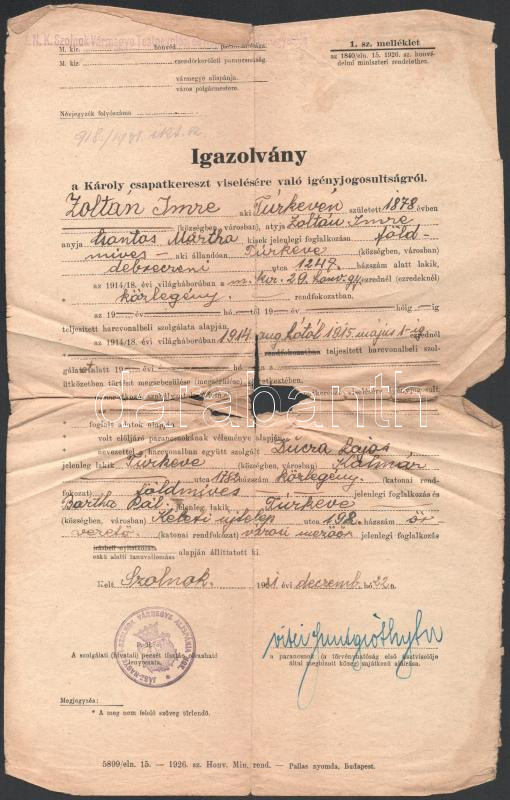 M. kir. honvéd parancsnoksága.
M. kir. csendőrkerületi parancsnokság.
vármegye alispánja.
város polgármestere.
Névjegyzék folyószáma
1. sz. melléklet
az 1840/eln. 15. 1926. sz. honvé-
delmi miniszteri rendelethez.
Igazolvány
a Károly csapatkereszt viselésére való igényjogosultságról.
Zoltán Imre aki Túrkeven született 1878 évben
(községben, városban), atyja Zoltán Imre
anyja Mártha kinek jelenlegi foglalkozása föld-
míves – aki állandóan Túrkeve
debreceni utca 1249. házszám alatt lakik,
az 1914/18. évi világháborúban a m. kir. 29. honv. gy. ezrednél (ezredeknél)
közlegény. rendfokozatban.
az 19 év hó -től 19 év hóig -ig
teljesített harcvonalbeli szolgálata alapján
az 1914/18. évi világháborúban 1914 aug. hótól 1915. május 1-ig ezrednél
rendfokozatban teljesített harcvonalbeli szol-
gálata alatt 19 év hó n a
ütközetben történt megsebesülése (megsérülése) következtében.
foglalt adatok alapján
volt elöljáró parancsnokának véleménye alapján
nevezettel a harcvonalban együtt szolgált Lajos
jelenleg lakik Túrkeve (községben, városban) Kálmán
utca 1752 házszám közlegény. (katonai rend-
fokozat) földmíves jelenlegi foglalkozás és
Bartha Pál jelenleg lakik Túrkeve
(községben, városban) Keleti újtelep utca 192. házszám őr
vezető. (katonai rendfokozat) városi mezőőr jelenlegi foglalkozás
írásbeli nyilatkozata
eskü alatti tanuvallomása alapján állíttatott ki.
Kelt Szolnok. 1931 évi decemb. hó 22 n.
JÁSZ-NAGYKUN-SZOLNOK VÁRMEGYE ALISPÁNJA
A szolgálati (hivatali) pecsét tisztán olvasható
lenyomata.
a parancsnok (a törvényhatóság első tisztviselője
által megbízott közeg) sajátkezű aláírása.
Megjegyzés:
* A meg nem felelő szöveg törlendő.
5899/eln. 15. — 1926. sz. Honv. Min. rend. — Pallas nyomda, Budapest.
darabanth